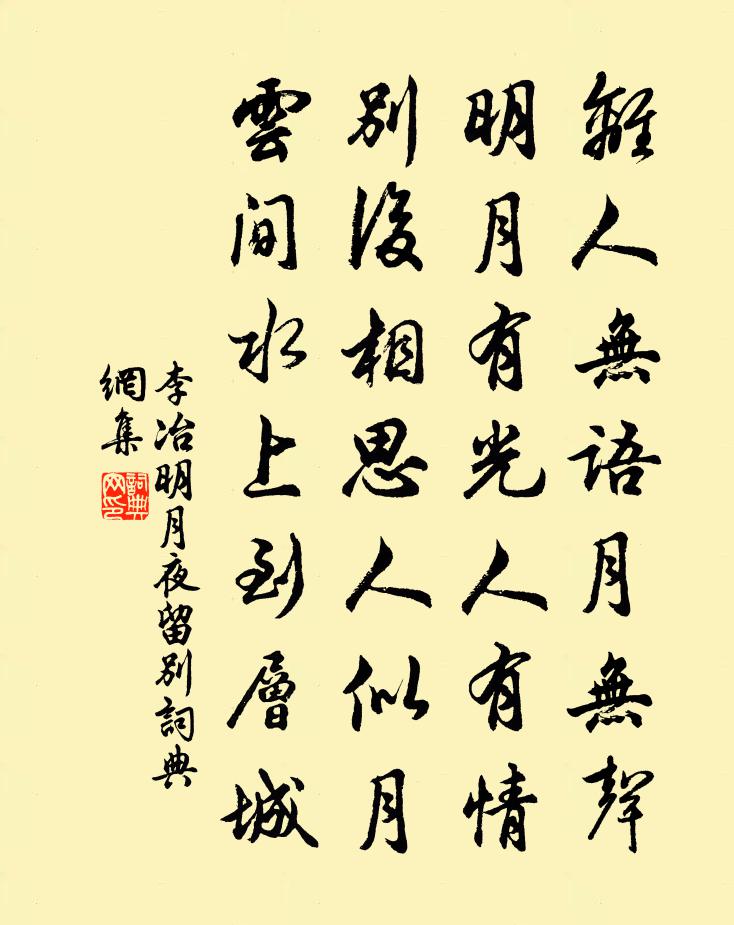 離人無語月無聲
明月有光人有情
別後相思人似月
雲間水上到層城
李冶明月夜留別詞典
網集
詞典
网印